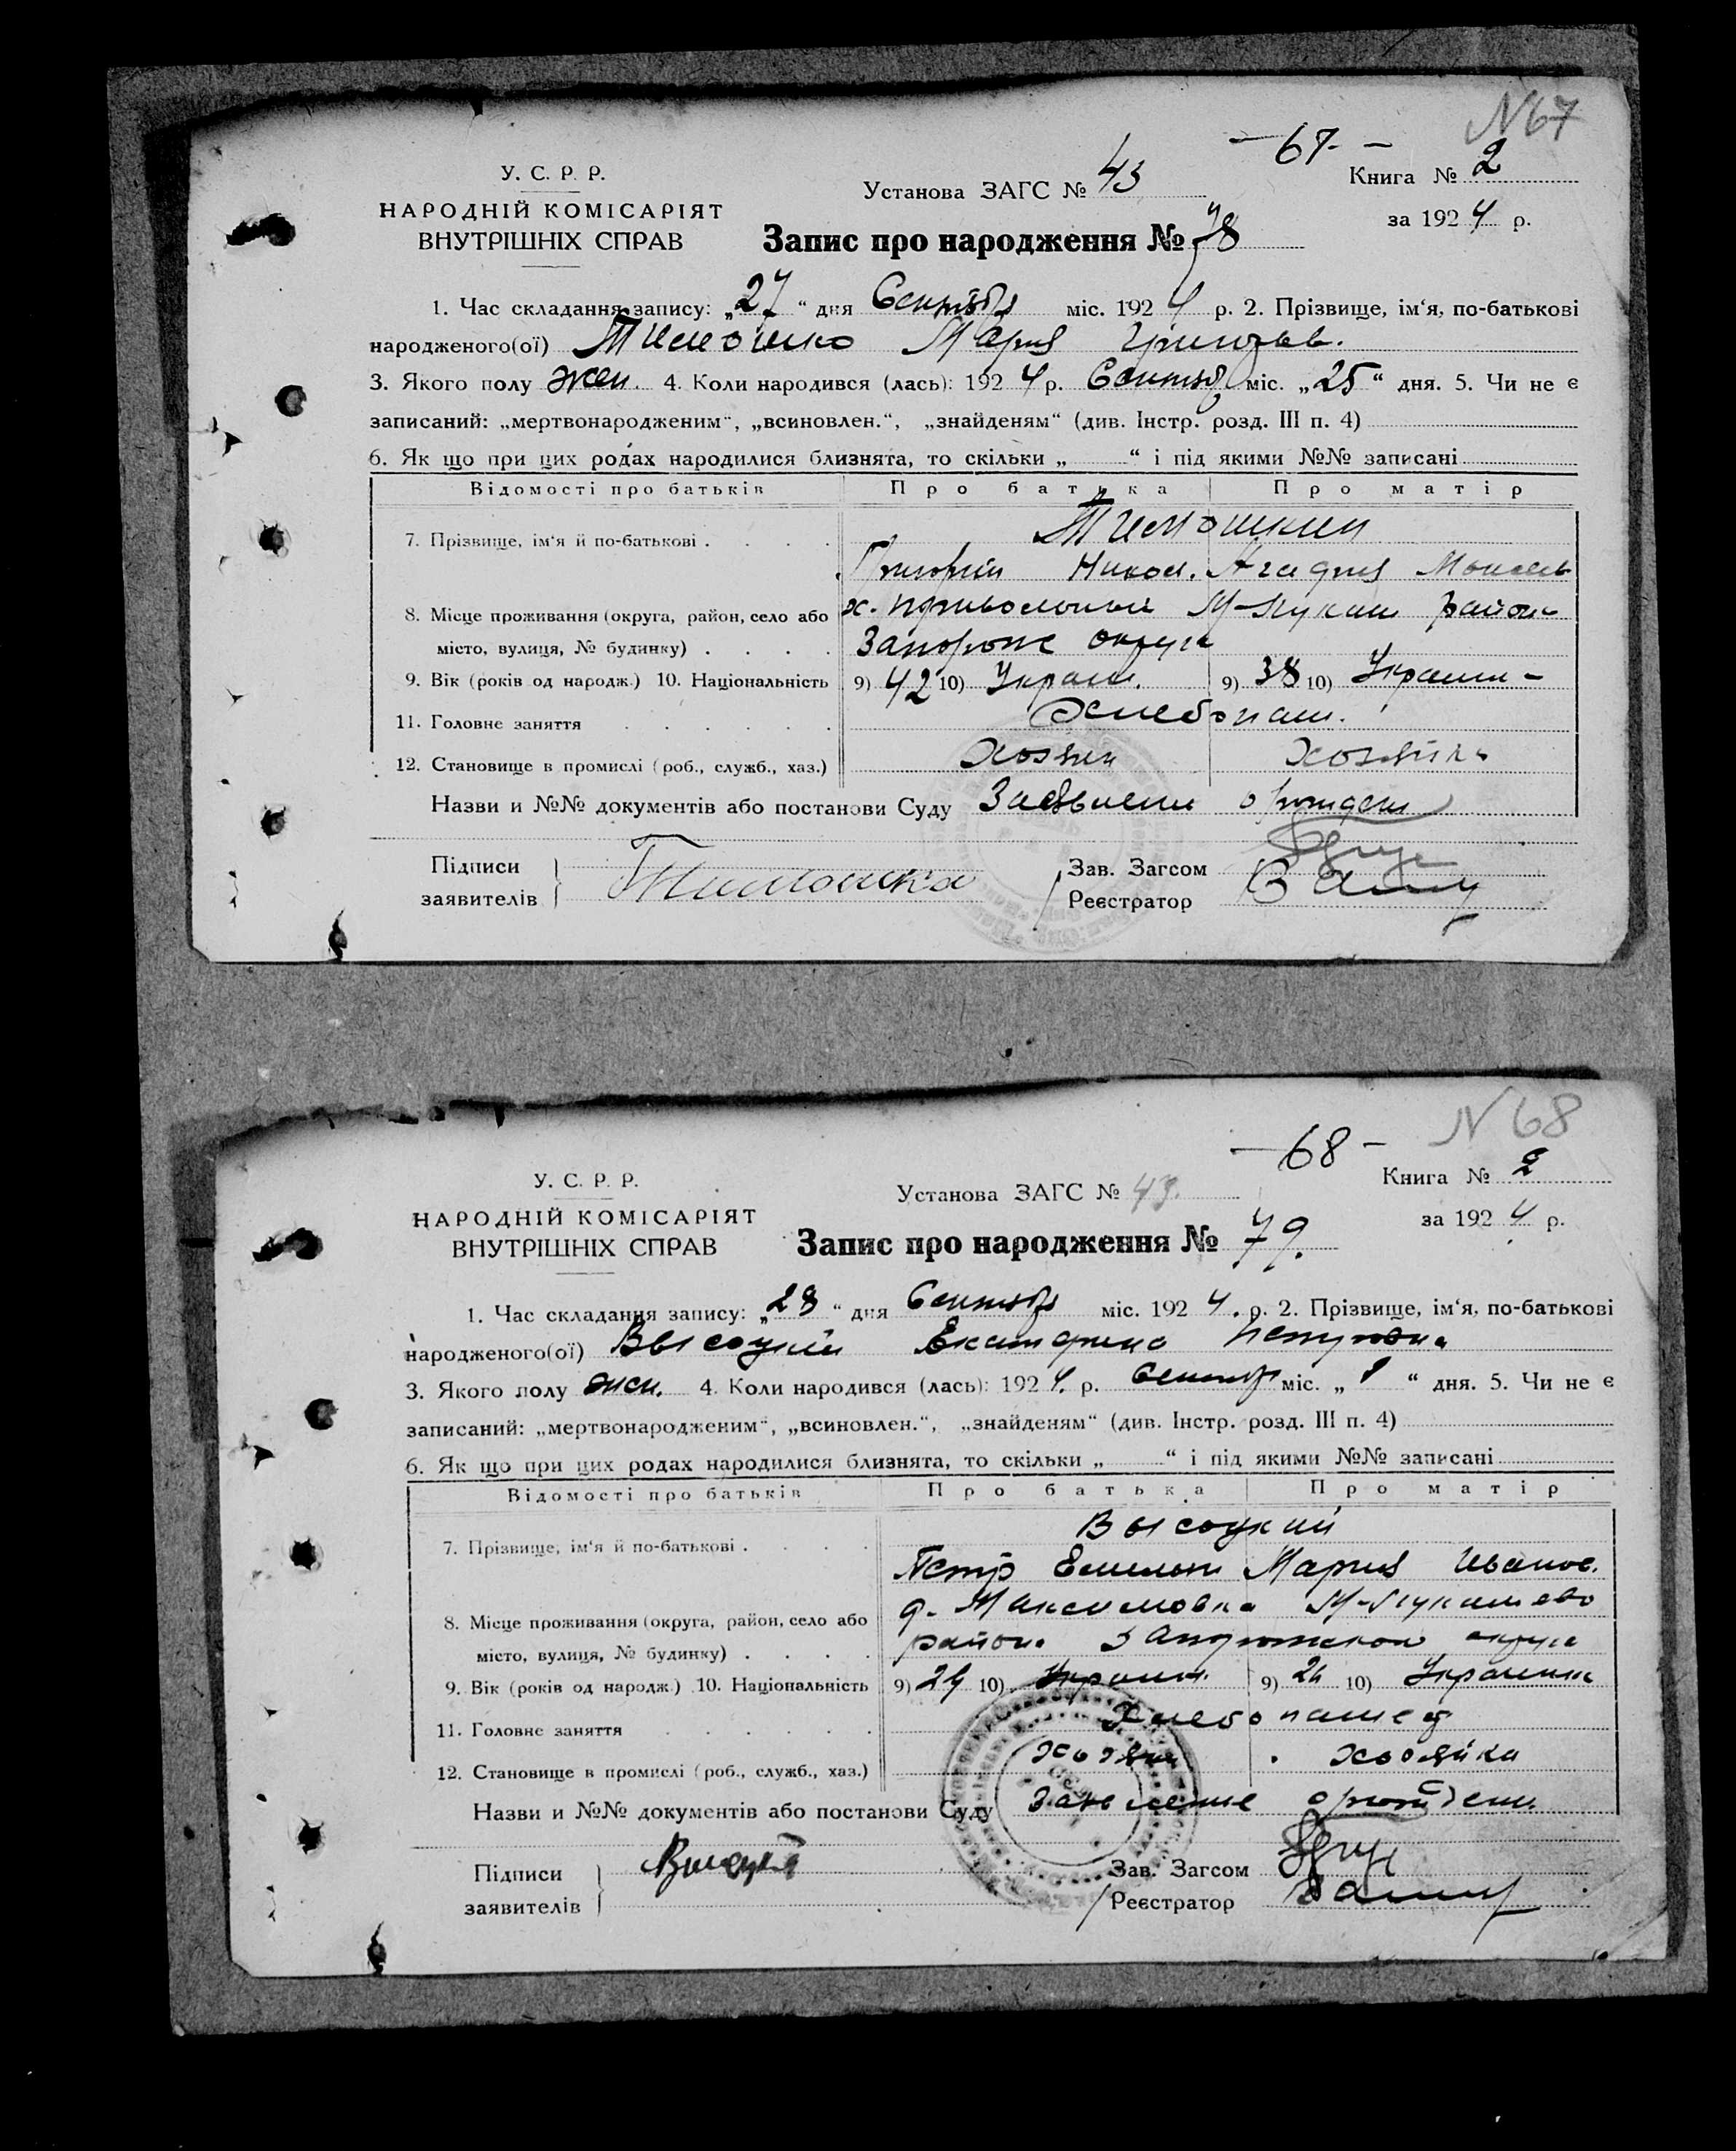 N 67
— 67. —
У. С. Р. Р.
Установа ЗАГС № 43
Книга № 2
НАРОДНІЙ КОМІСАРІЯТ
за 1924 р.
ВНУТРІШНІХ СПРАВ
Запис про народження № 78
1. Час складання запису: „27“ дня Сентября міс. 1924 р. 2. Прізвище, ім‘я, по-батькові
народженого(ої) Тимошко Мария Григорьев.
3. Якого полу жен. 4. Коли народився (лась): 1924 р. Сентяб міс. „25“ дня. 5. Чи не є
записаний: „мертвонародженим“, „всиновлен.“, „знайденям“ (див. Інстр. розд. III п. 4)
6. Як що при цих родах народилися близнята, то скільки „ “ і під якими №№ записані
Відомості про батьків Про батька Про матір
Тимошкин
7. Прізвище, ім‘я й по-батькові
Григорий Никол.
8. Місце проживання (округа, район, село або х. Привольный М-Лукаш район
місто, вулиця, № будинку) Запорож округа
9. Вік (років од народж.) 10. Національність 9) 42 10) Украин. 9) 38 10) Украин-
11. Головне заняття Хлебопаш.
12. Становище в промислі (роб., служб., хаз.) Хозяин Хозяйка
Назви и №№ документів або постанови Суду Заявление о рожден
Підписи Тимошка
заявителів
Зав. Загсом
Реєстратор
N 68
— 68 —
У. С. Р. Р.
Установа ЗАГС № 43.
Книга № 2
НАРОДНІЙ КОМІСАРІЯТ
за 1924 р.
ВНУТРІШНІХ СПРАВ
Запис про народження № 79.
1. Час складання запису: „28“ дня Сентября міс. 1924. р. 2. Прізвище, ім‘я, по-батькові
народженого(ої) Высоцкий Екатерина Петровна
3. Якого полу жен. 4. Коли народився (лась): 1924. р. Сентяр міс. „1“ дня. 5. Чи не є
записаний: „мертвонародженим“, „всиновлен.“, „знайденям“ (див. Інстр. розд. III п. 4)
6. Як що при цих родах народилися близнята, то скільки „ “ і під якими №№ записані
Відомості про батьків Про батька Про матір
Высоцкий
7. Прізвище, ім‘я й по-батькові
Петр Емельян Мария Иванов.
8. Місце проживання (округа, район, село або д. Максимовка М-Лукашево
місто, вулиця, № будинку) района Запорожской округи
9. Вік (років од народж.) 10. Національність 9) 24 10) Украин. 9) 10) Украинк
11. Головне заняття Хлебопашед
12. Становище в промислі (роб., служб., хаз.) Хозяин Хозяйка
Назви и №№ документів або постанови Суду Заявление о рожден.
Підписи Высоцкий
заявителів
Зав. Загсом
Реєстратор